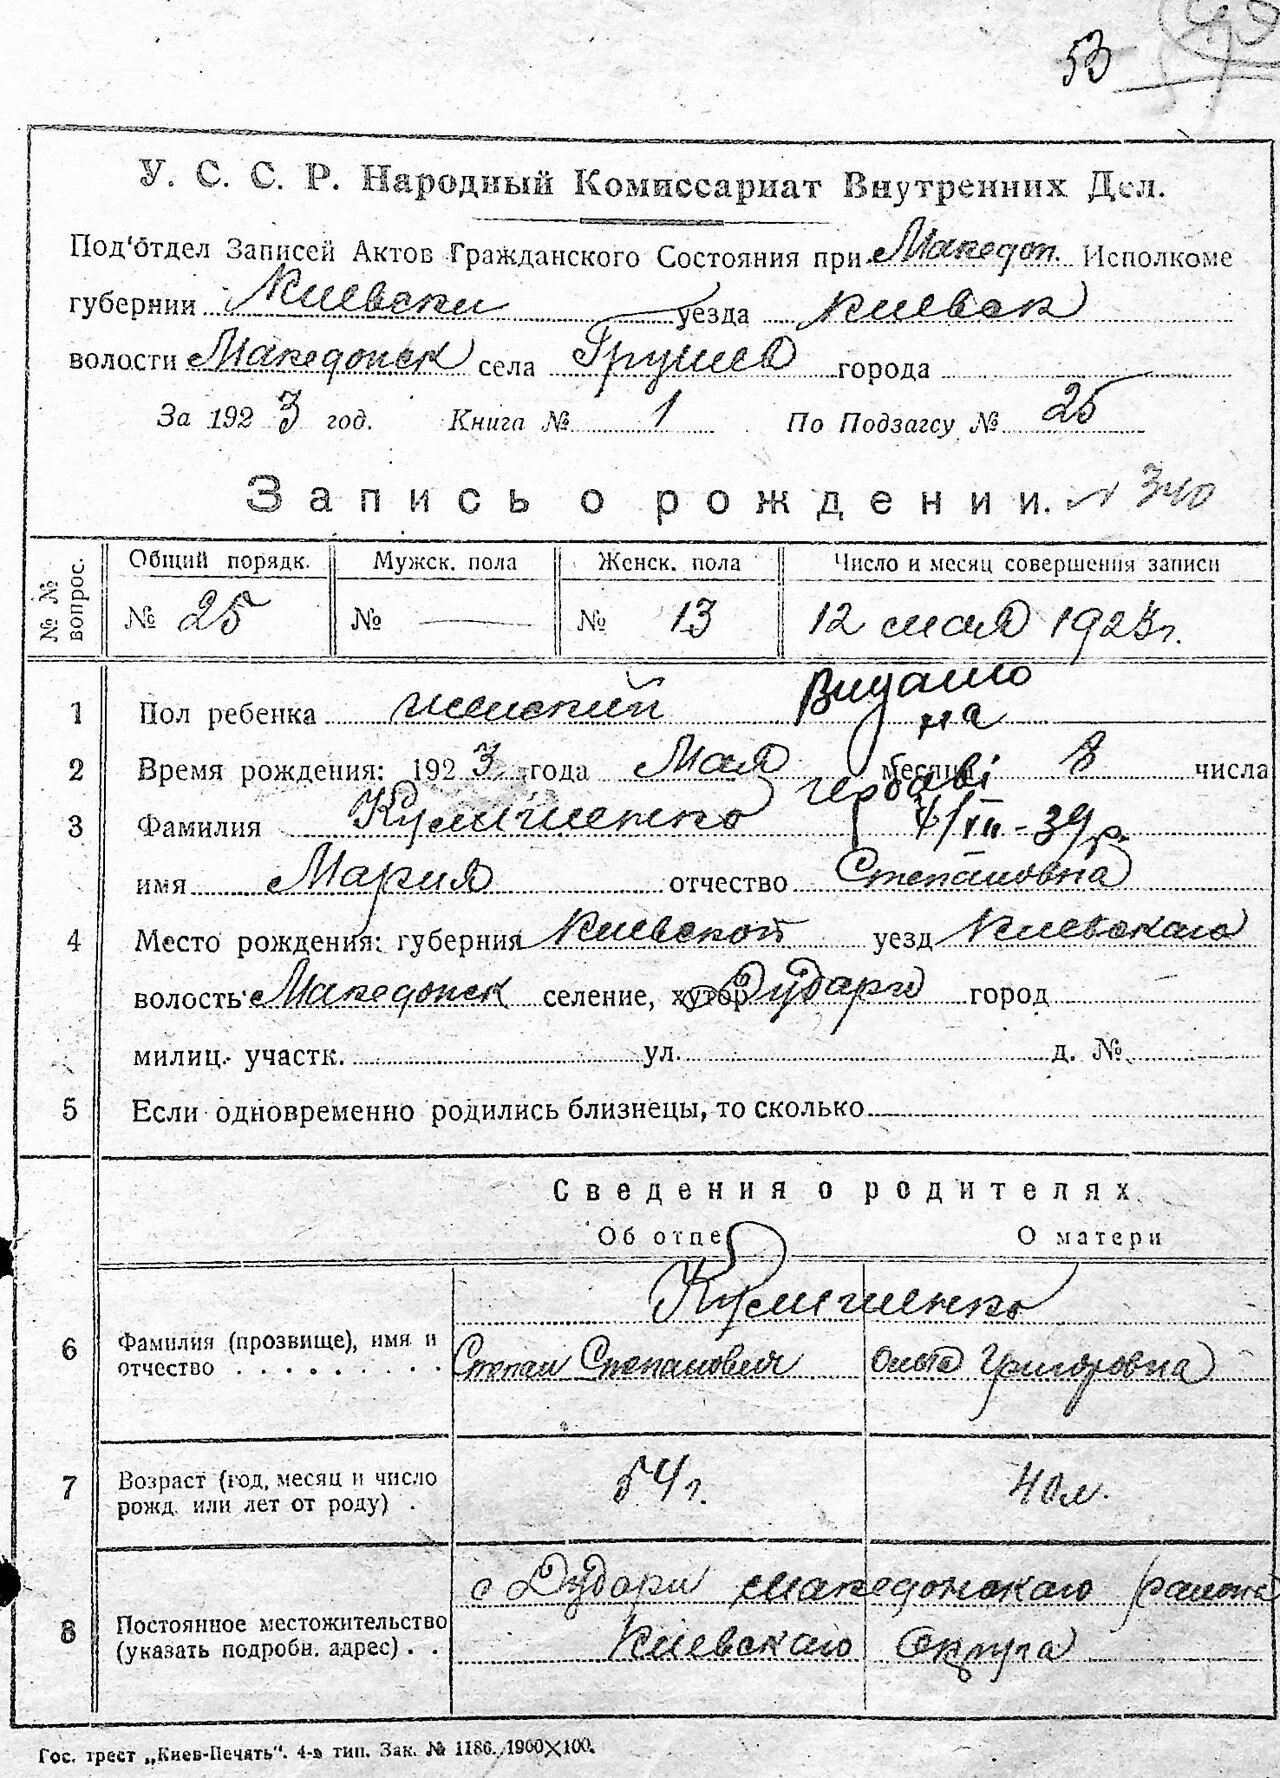 53
У. С. С. Р. Народный Комиссариат Внутренних Дел.
Под'отдел Записей Актов Гражданского Состояния при Македон. Исполкоме
губернии Киевски уезда Киевск
волости Македонск села Грушев города
За 1923 год. Книга № 1 По Подзагсу № 25
Запись о рождении. № 340
№ № вопрос. Общий порядк. Мужск. пола Женск. пола Число и месяц совершения записи
№ 25 № — № 13 12 мая 1923 г.
1 Пол ребенка женский Видано
на
2 Время рождения: 1923 года Мая месяца 8 числа
гербові
3 Фамилия 7/III - 39 р.
имя Мария отчество Степановна
4 Место рождения: губерния Киевской уезд Киевскаго
волость Македонск селение, хутор Дудари город
милиц. участк. ул. д. №
5 Если одновременно родились близнецы, то сколько
Сведения о родителях
Об отце О матери
6 Фамилия (прозвище), имя и
отчество . . . . . . . . . Степан Степанович Ольга Григоровна
7 Возраст (год, месяц и число
рожд. или лет от роду) . 54 г. 40 л.
с Дудари Македонскаго района
8 Постоянное местожительство
(указать подробн. адрес) . . Киевскаго Округа
Гос. трест „Киев-Печать“. 4-я тип. Зак. № 1186. 1900×100.